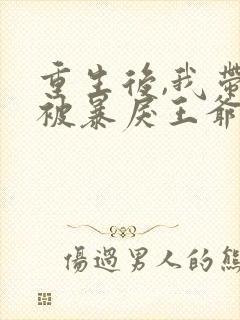 重生後,我帶
被暴戾王爺
傷過男人的熊